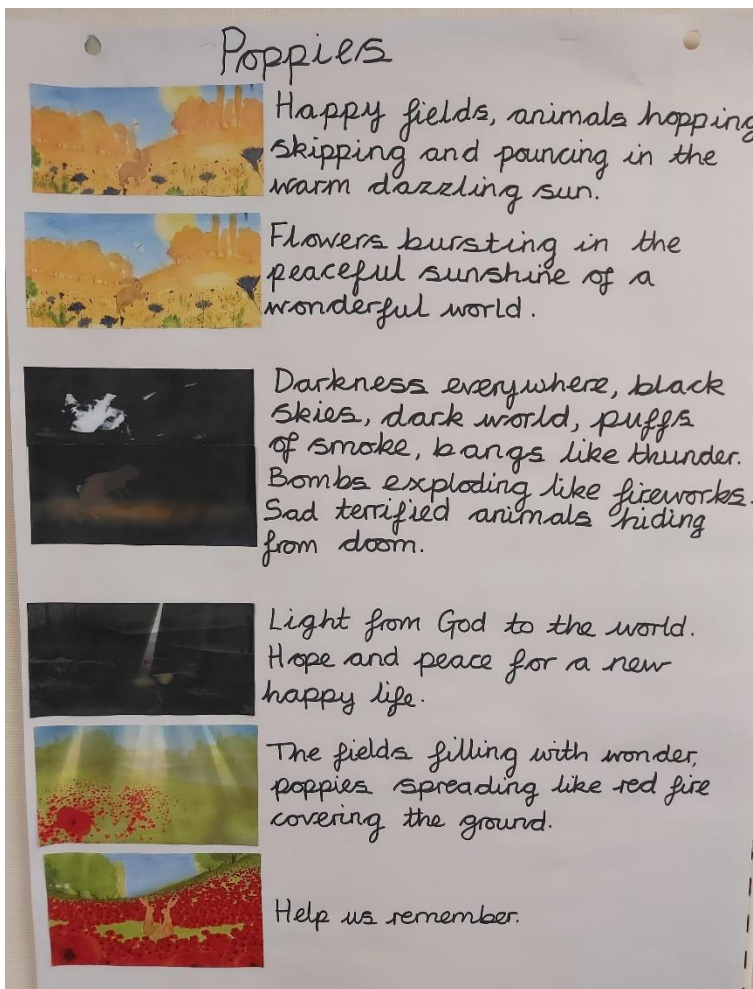 Poppies
Happy fields, animals hopping
skipping and pouncing in the
warm dazzling sun.
Flowers bursting in the
peaceful sunshine of a
wonderful world.
Darkness everywhere, black
skies, dark world, puffs
of smoke, bangs like thunder.
Bombs exploding like fireworks.
Sad terrified animals hiding
from doom.
Light from God to the world.
Hope and peace for a new
happy life.
The fields filling with wonder,
poppies spreading like red fire
covering the ground.
Help us remember.